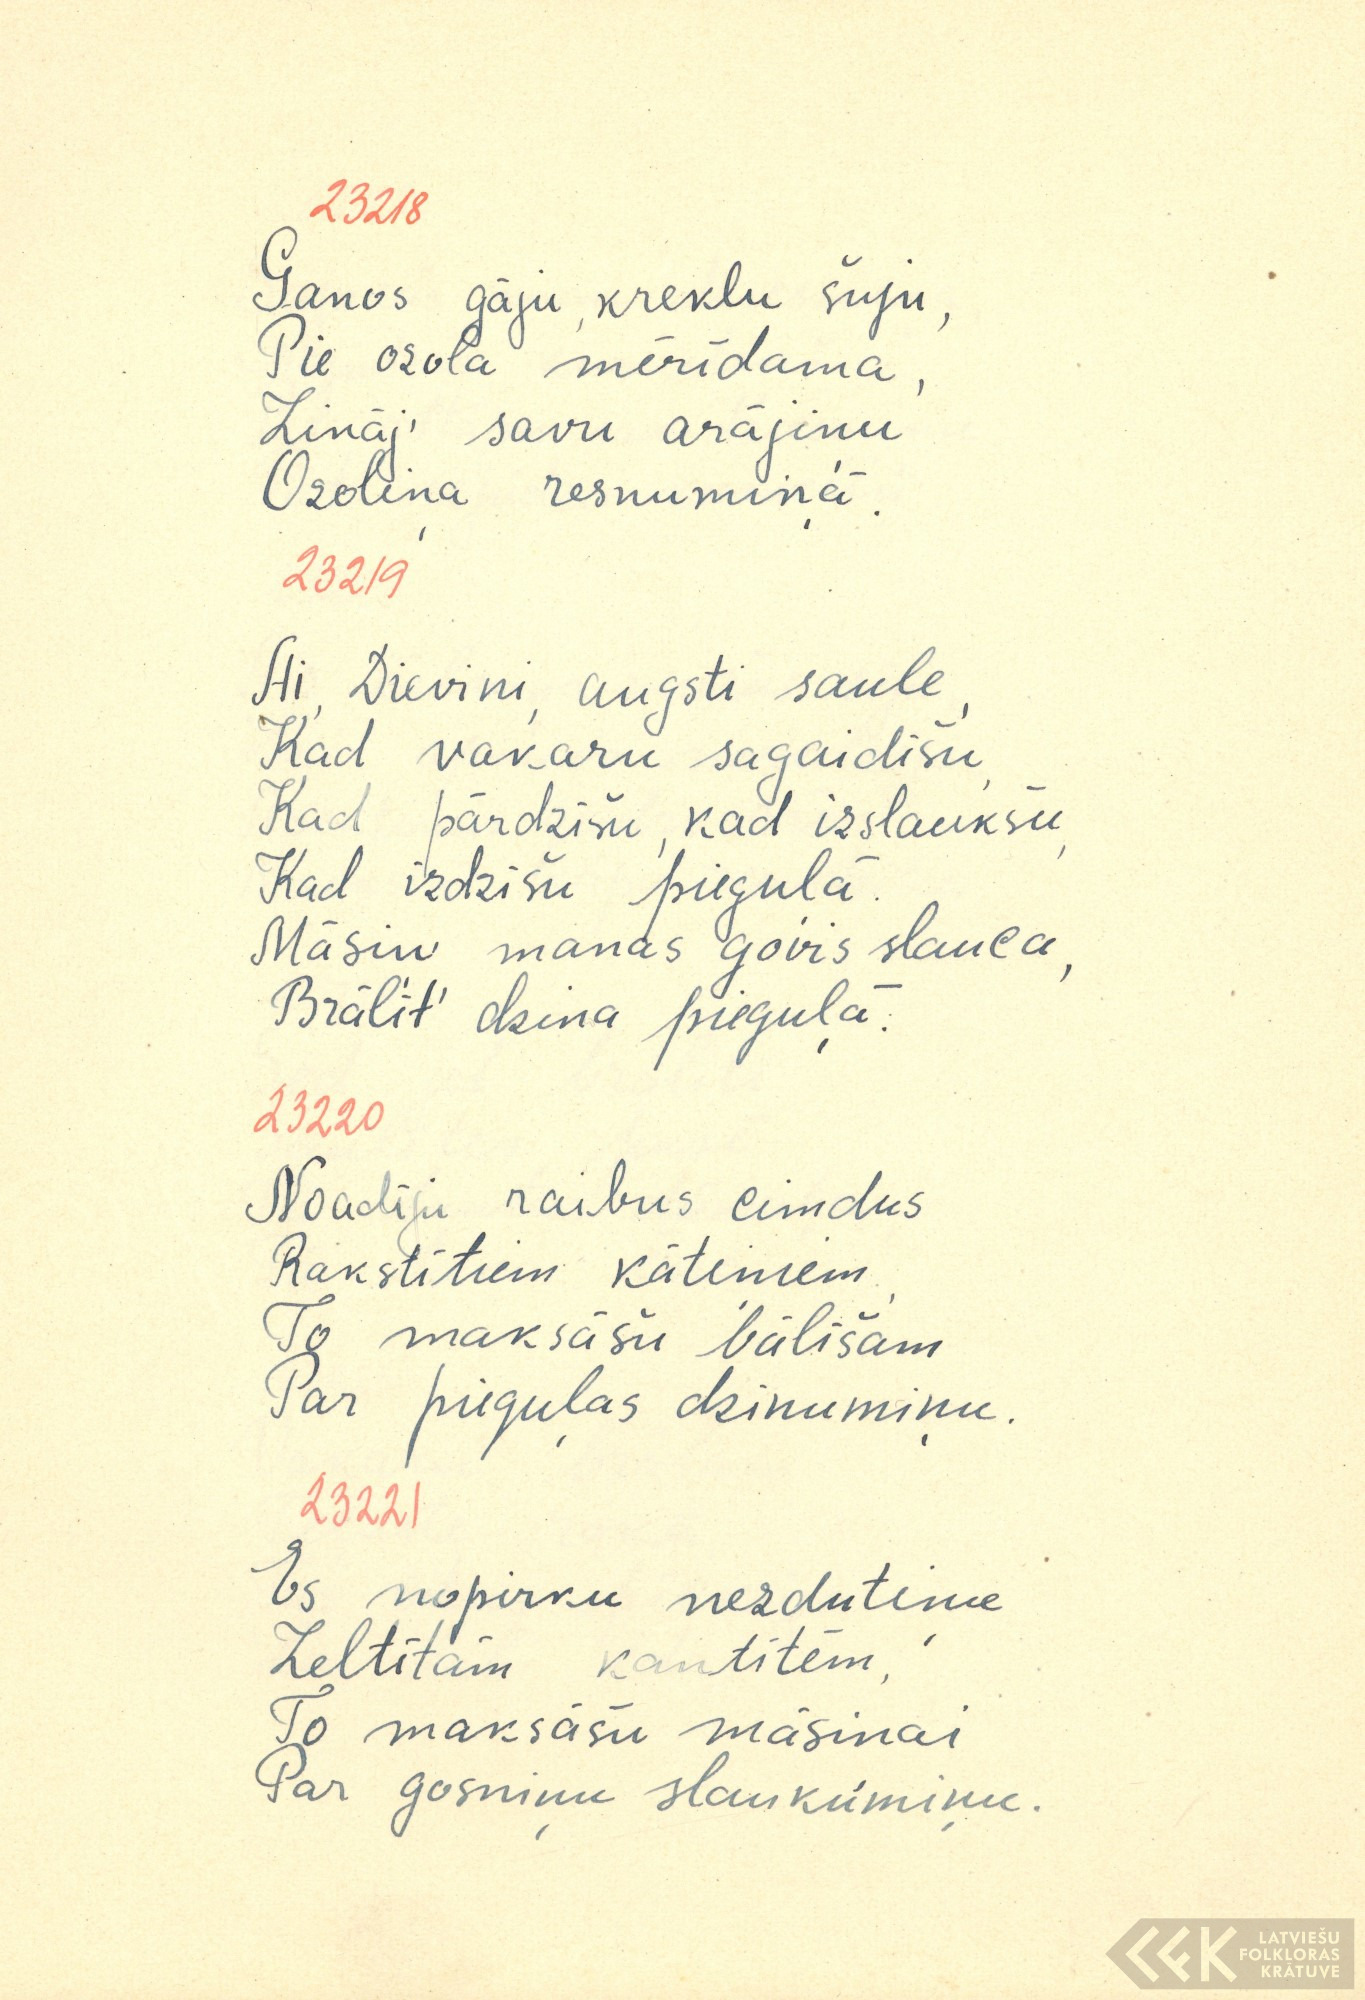 23218
Ganos gāju, kreklu šuju,
Pie ozola mērīdama,
Zināj' savu arājinu
Ozoliņa resnumiņā.
23219
Ai, Dievini, augsti saule,
Kad vakaru sagaidīšu,
Kad pārdzīšu, kad izslaukšu,
Kad izdzīšu piegulā.
Māsin' manas govis slauca,
Brālīt' dzina pieguļā.
23220
Noadīju raibus cimdus
Rakstītiem kātiniem,
To maksāšu bālīšam
Par pieguļas dzinumiņu.
23221
Es nopirku nēzdutiņu
Zeltītām kantītēm,
To maksāšu māsinai
Par gosniņu slaukumiņu.
LATVIEŠU
FOLKLORAS
KRĀTUVE